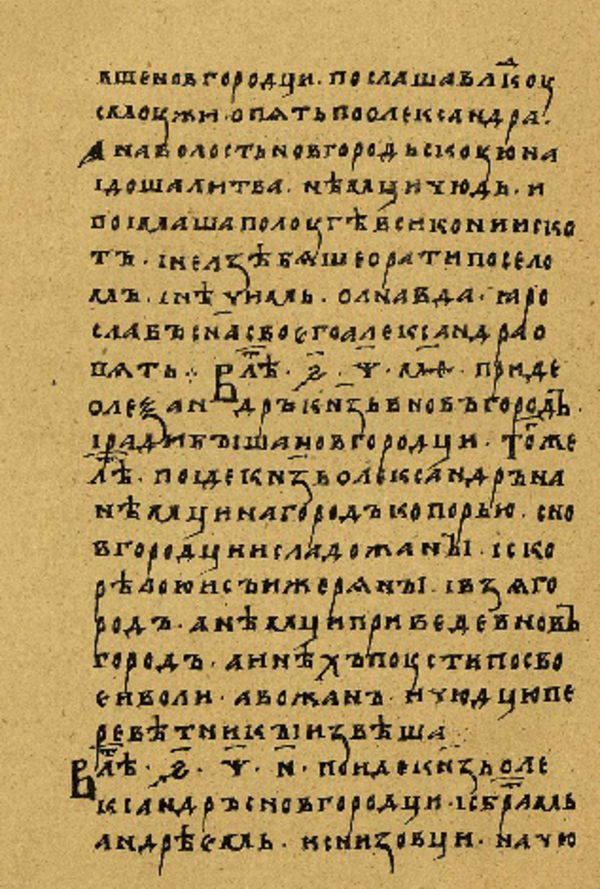 вшеновгородци. послашавлⷣкоу
смоужи. опѧтьпоолександра.
Анаволостьновгородьскоуюна
їдошалитва. нѣмцичюдь. и
поїмашаполоугѣвсикониискo
тъ. їнелзѣбѧшеоратипосело
мъ. їнѣчимь. олнавда. ꙗро
славъсн҃асвоегоалександрао
пѧть. Влѣⷮ. ҂ѕ҃. ѱ҃. м҃ѳ҃. приде
олеѯандръкнѧ҃зьвновъгородъ.
їрадибꙑшановгородци. Томже
лѣⷮ. поїдекнѧ҃зьолександръна
нѣмцинагородъкопорью. сно
вгородциисладожанꙑ. їско
рѣлоюисъижерѧнꙑ. ївзѧго
родъ. анѣмциприведевновъ
городъ. аинѣхъпоустипосво
еиволи. авожанъ. ичюдцюпе
ревѣтникꙑизвѣша
Влѣⷮ. ҂ѕ҃. ѱ҃. н҃. поидекнѧ҃зьоле
ксандръсновгородци. їсбратомь
андрѣемь. иснизовци. начю